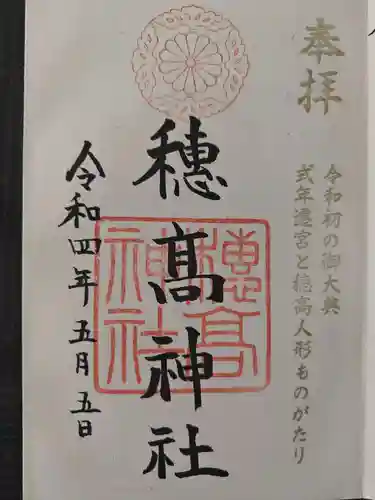 奉拝
令和初の御大典
式年遷宮と穂高人形ものがたり
穂髙神社
穂高神社
令和四年五月五日